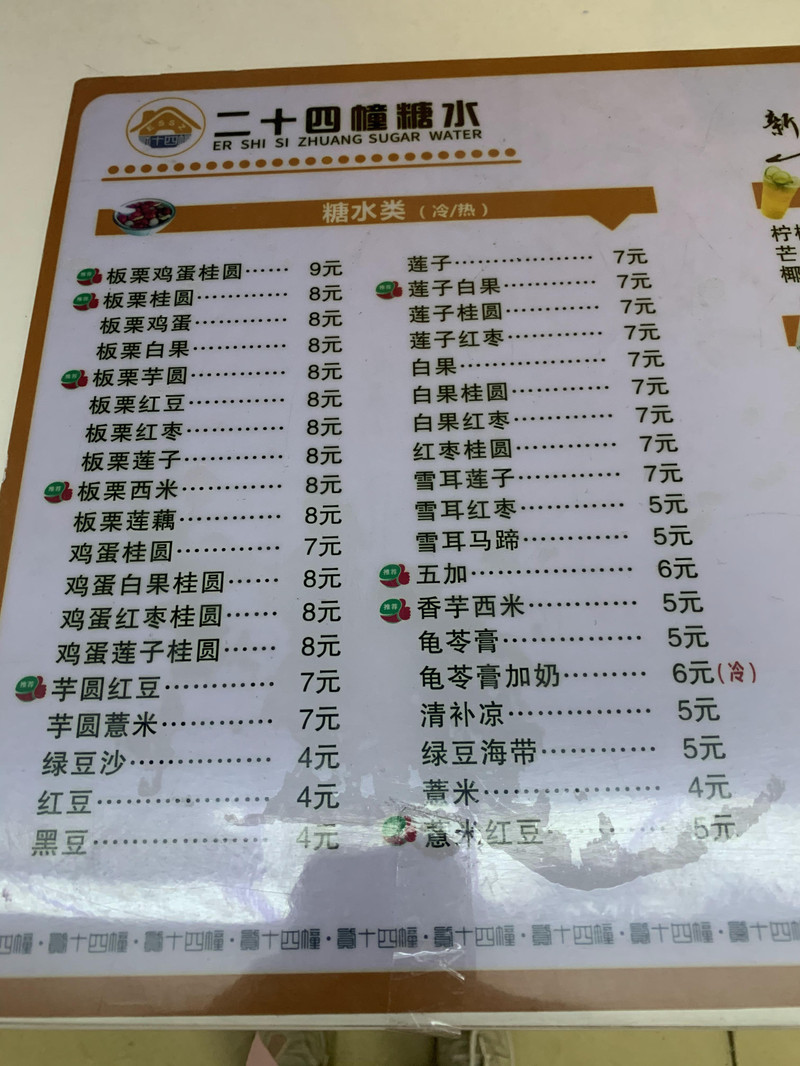 二十四幢糖水
ER SHI SI ZHUANG SUGAR WATER
糖水类（冷/热）
推荐 板栗鸡蛋桂圆…… 9元
推荐 板栗桂圆………… 8元
板栗鸡蛋………… 8元
板栗白果………… 8元
推荐 板栗芋圆………… 8元
板栗红豆………… 8元
板栗红枣………… 8元
板栗莲子………… 8元
推荐 板栗西米………… 8元
板栗莲藕………… 8元
鸡蛋桂圆………… 7元
鸡蛋白果桂圆…… 8元
鸡蛋红枣桂圆…… 8元
鸡蛋莲子桂圆…… 8元
推荐 芋圆红豆………… 7元
芋圆薏米………… 7元
绿豆沙…………… 4元
红豆……………… 4元
黑豆……………… 4元
莲子……………… 7元
推荐 莲子白果………… 7元
莲子桂圆………… 7元
莲子红枣………… 7元
白果……………… 7元
白果桂圆………… 7元
白果红枣………… 7元
红枣桂圆………… 7元
雪耳莲子………… 7元
雪耳红枣………… 5元
雪耳马蹄………… 5元
推荐 五加……………… 6元
推荐 香芋西米………… 5元
龟苓膏…………… 5元
龟苓膏加奶……… 6元(冷)
清补凉…………… 5元
绿豆海带………… 5元
薏米……………… 4元
薏米红豆………… 5元
新
柠
芒
椰
四幢·二十四幢·二十四幢·二十四幢·二十四幢·二十四幢·二十四幢·二十四幢·二十四